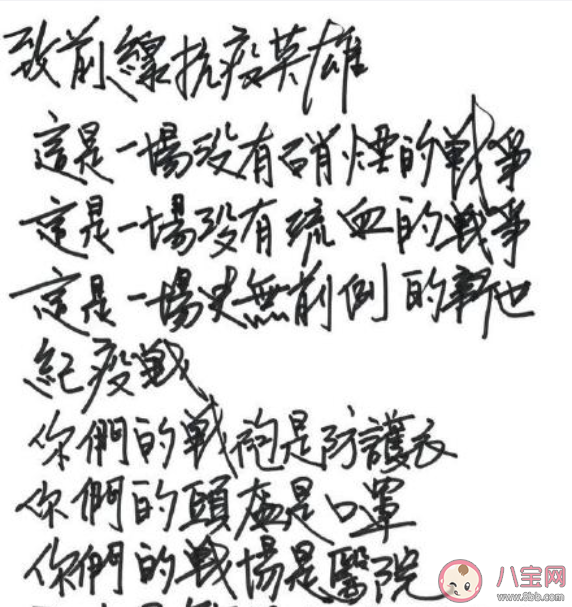 致前線抗疫英雄
這是一場沒有硝煙的戰爭
這是一場沒有流血的戰爭
這是一場史無前例的新世
紀疫戰
你們的戰袍是防護衣
你們的頭盔是口罩
你們的戰場是醫院
八宝网
www.8bb.com